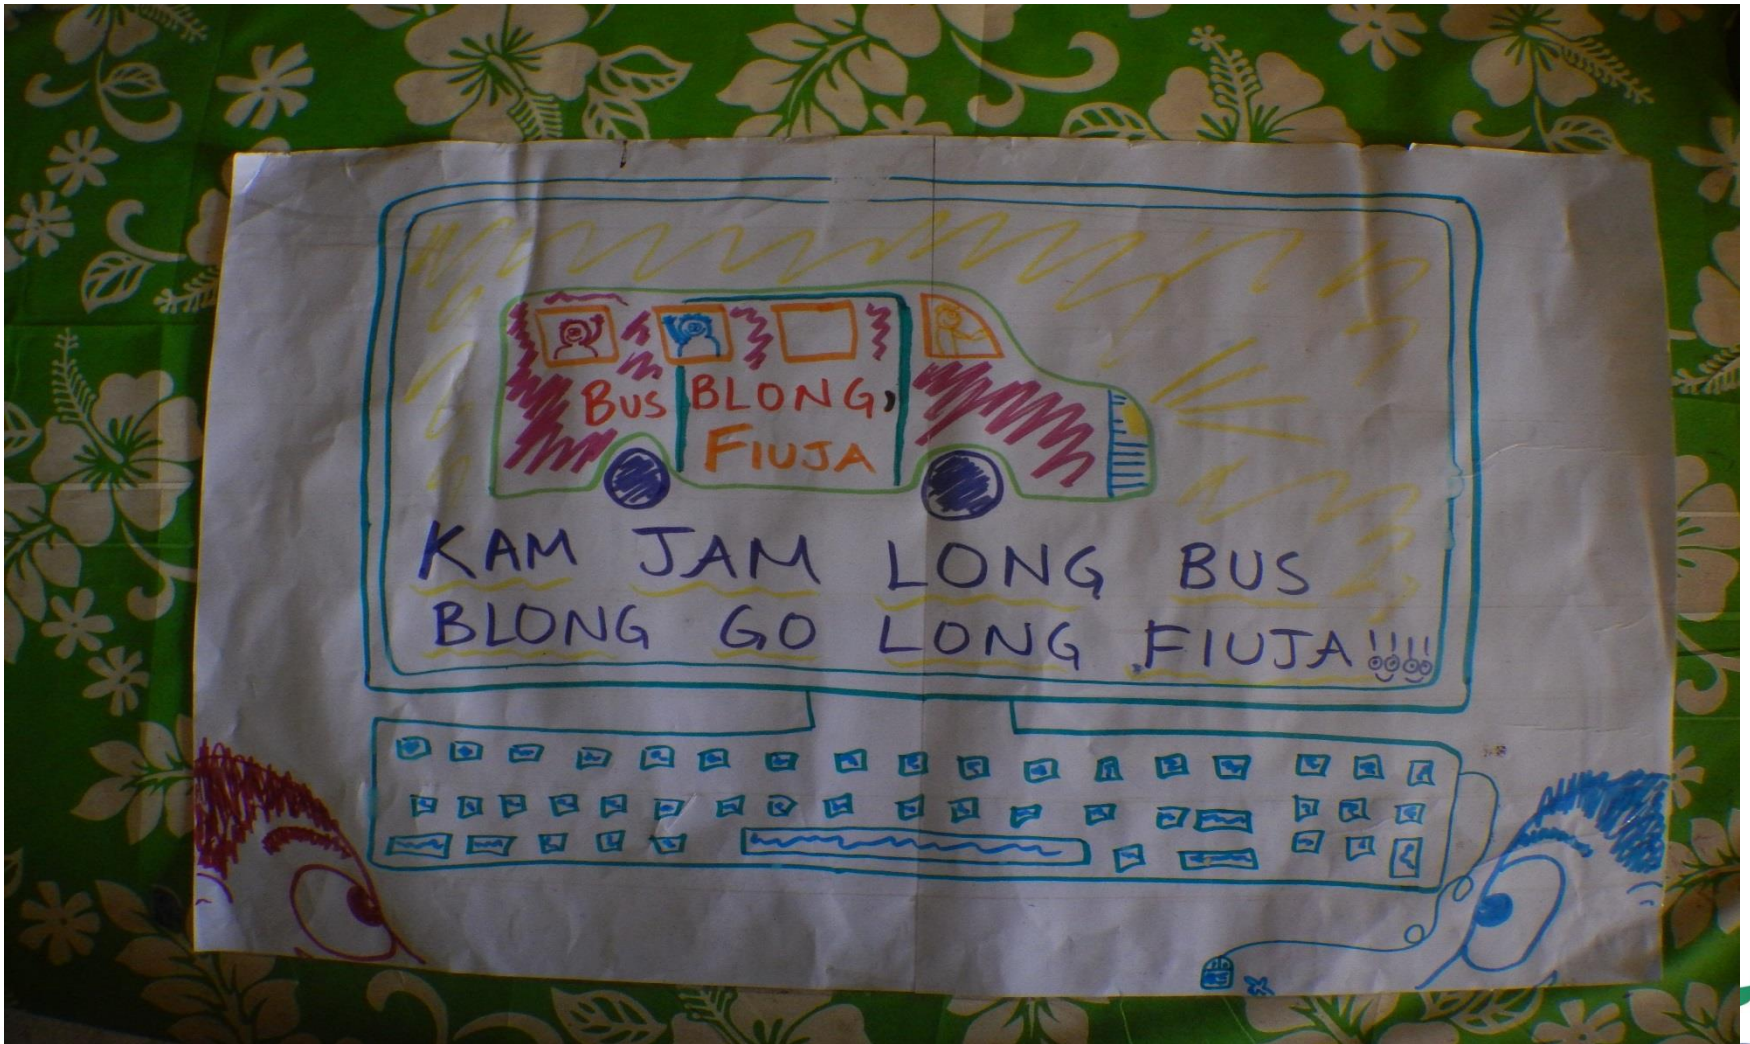 BUS BLONG,
FIUJA
KAM JAM LONG BUS
BLONG GO LONG FIUJA!!!!